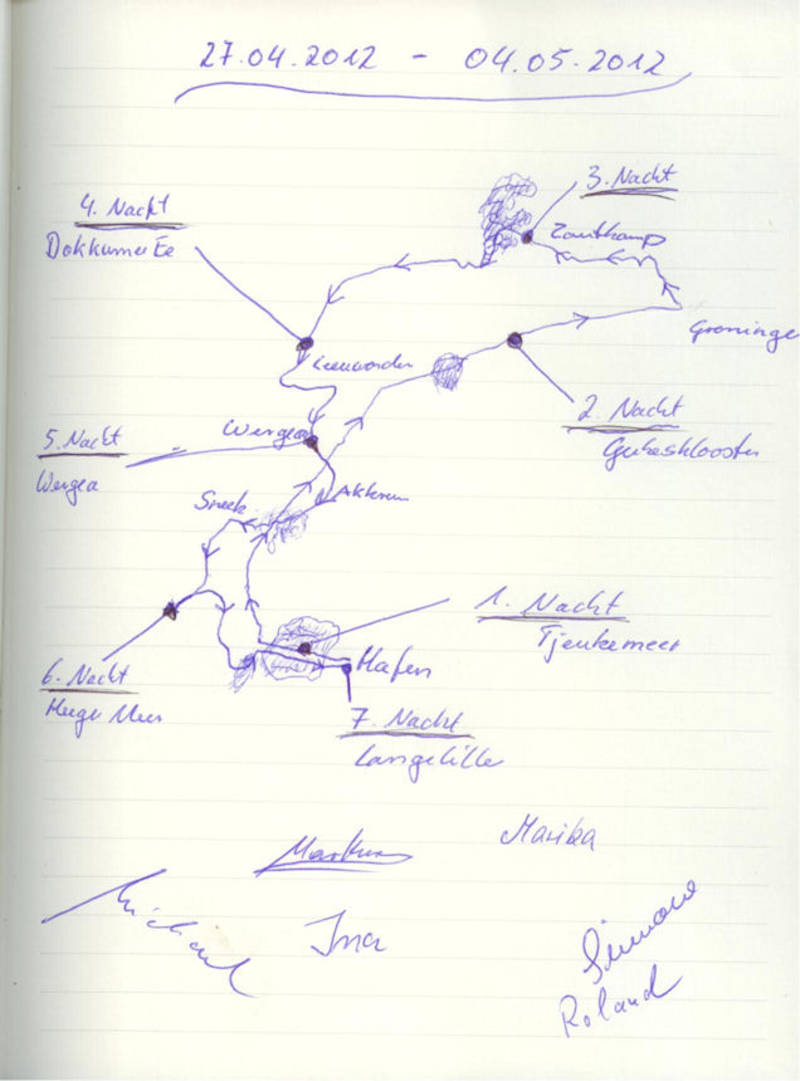 27.04.2012 - 04.05.2012
3. Nacht
Zoutkamp
4. Nacht
Dokkumer Ee
Groninge
Leeuwarden
2. Nacht
Wergea
5. Nacht
Wergea
Akkrum
Sneek
1. Nacht
Tjeukemeer
Hafen
6. Nacht
Heeger Meer
7. Nacht
Langelille
Marika
Markus
Michael
Ina
Simone
Roland